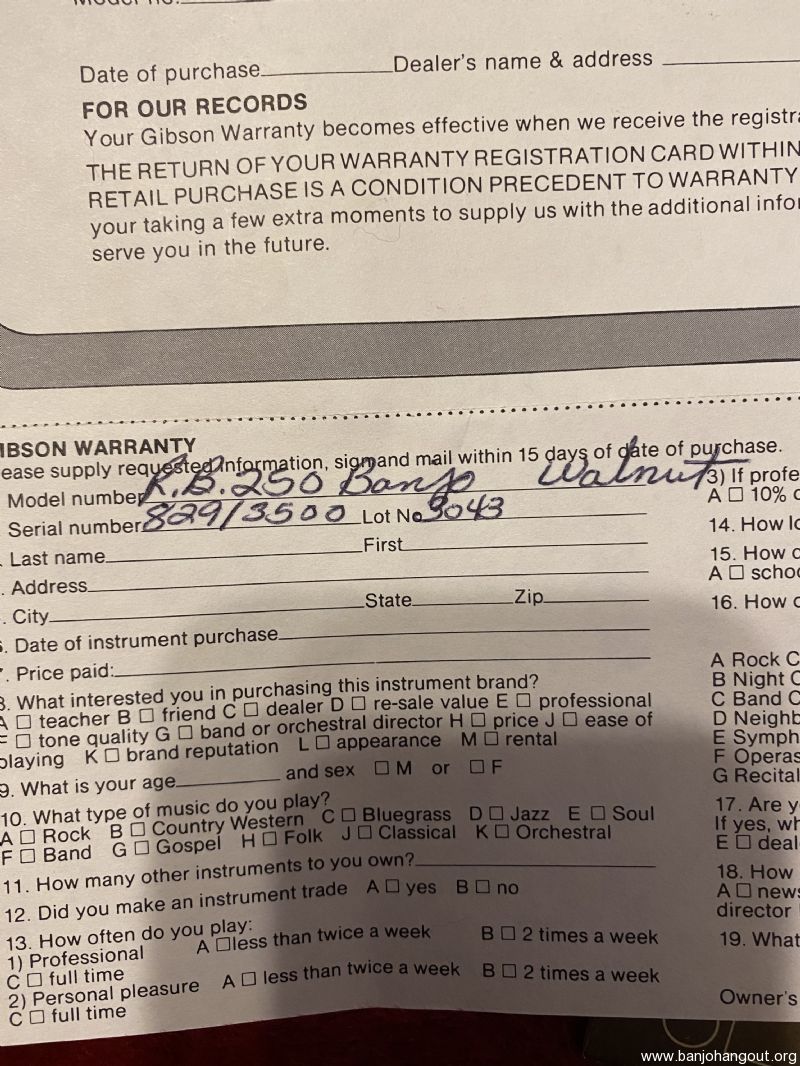 Date of purchase Dealer's name & address
FOR OUR RECORDS
Your Gibson Warranty becomes effective when we receive the registra
THE RETURN OF YOUR WARRANTY REGISTRATION CARD WITHIN
RETAIL PURCHASE IS A CONDITION PRECEDENT TO WARRANTY
your taking a few extra moments to supply us with the additional infor
serve you in the future.
IBSON WARRANTY
ease supply requested information, sign and mail within 15 days of date of purchase.
Model number R.B. 250 Banjo Walnut
Serial number 82913500 Lot No 3043
. Last name First
. Address
. City State Zip
. Date of instrument purchase
. Price paid:
. What interested you in purchasing this instrument brand?
A □ teacher B □ friend C □ dealer D □ re-sale value E □ professional
F □ tone quality G □ band or orchestral director H □ price J □ ease of
playing K □ brand reputation L □ appearance M □ rental
9. What is your age and sex □ M or □ F
10. What type of music do you play?
A □ Rock B □ Country Western C □ Bluegrass D □ Jazz E □ Soul
F □ Band G □ Gospel H □ Folk J □ Classical K □ Orchestral
11. How many other instruments to you own?
12. Did you make an instrument trade A □ yes B □ no
13. How often do you play:
1) Professional A □ less than twice a week B □ 2 times a week
C □ full time
2) Personal pleasure A □ less than twice a week B □ 2 times a week
C □ full time
3) If profe
A □ 10% o
14. How lo
15. How o
A □ schoo
16. How o
A Rock C
B Night C
C Band C
D Neighb
E Symph
F Operas
G Recital
17. Are y
If yes, wh
E □ deal
18. How
A □ news
director
19. What
Owner's
www.banjohangout.org